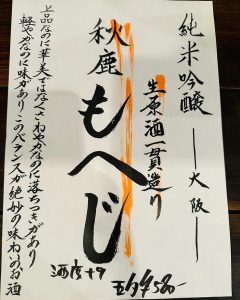 純米吟醸 ―大阪―
生原酒一貫造り
秋鹿 もへじ
酒度+9
五勺¥580-
上品なのに華美ではなくさわやかなのに落ちつきがあり
軽やかなのに味力あり このバランスが絶妙の味わいのお酒